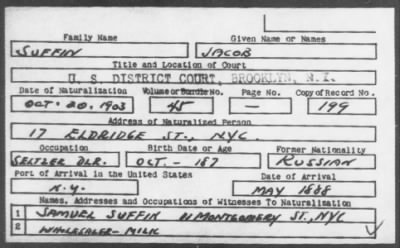 Family Name Given Name or Names
SUFFIN JACOB
Title and Location of Court
U. S. DISTRICT COURT, BROOKLYN, N.Y.
Date of Naturalization Volume or Bundle No. Page No. Copy of Record No.
OCT. 20. 1903 45 — 199
Address of Naturalized Person
17 ELDRIDGE ST., NYC.
Occupation Birth Date or Age Former Nationality
SELTZER DLR. OCT. - 187 RUSSIAN
Port of Arrival in the United States Date of Arrival
N.Y. MAY 1888
Names, Addresses and Occupations of Witnesses To Naturalization
1 SAMUEL SUFFIN 11 MONTGOMERY ST., NYC
2 WHOLESALER - MILK